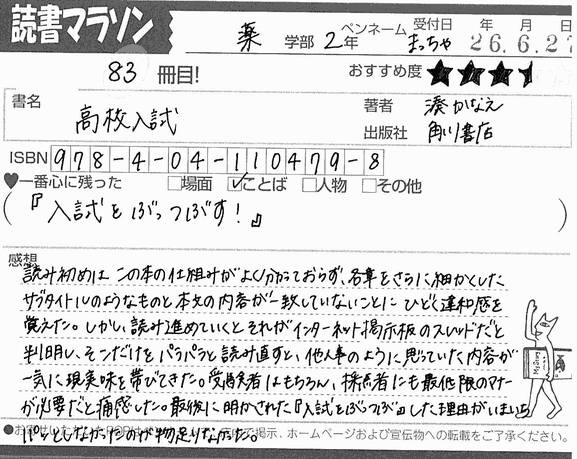 読書マラソン
薬 学部 2年 ペンネーム まっちゃ 受付日 年 月 日 26.6.27
83 冊目! おすすめ度 ★★★
書名 高校入試
著者 湊かなえ
出版社 角川書店
ISBN 978-4-04-110479-8
♥一番心に残った □場面 ☑ことば □人物 □その他
(『入試をぶっつぶす!』)
感想
読み初めは この本の仕組みがよく分かっておらず、各章をさらに細かくした
サブタイトルのようなものと本文の内容が一致していないことに ひどく違和感を
覚えた。しかし、読み進めていくと それがインターネット掲示板のスレッドだと
判明し、そこだけを パラパラと読み直すと、他人事のように思っていた内容が
一気に現実味を帯びてきた。受験者はもちろん、採点者にも最低限のマナー
が必要だと痛感した。最後に明かされた『入試をぶっつぶ』した理由がいまいち
パッとしなかったのが物足りなかった。
での掲示、ホームページおよび宣伝物への転載をご了承ください。